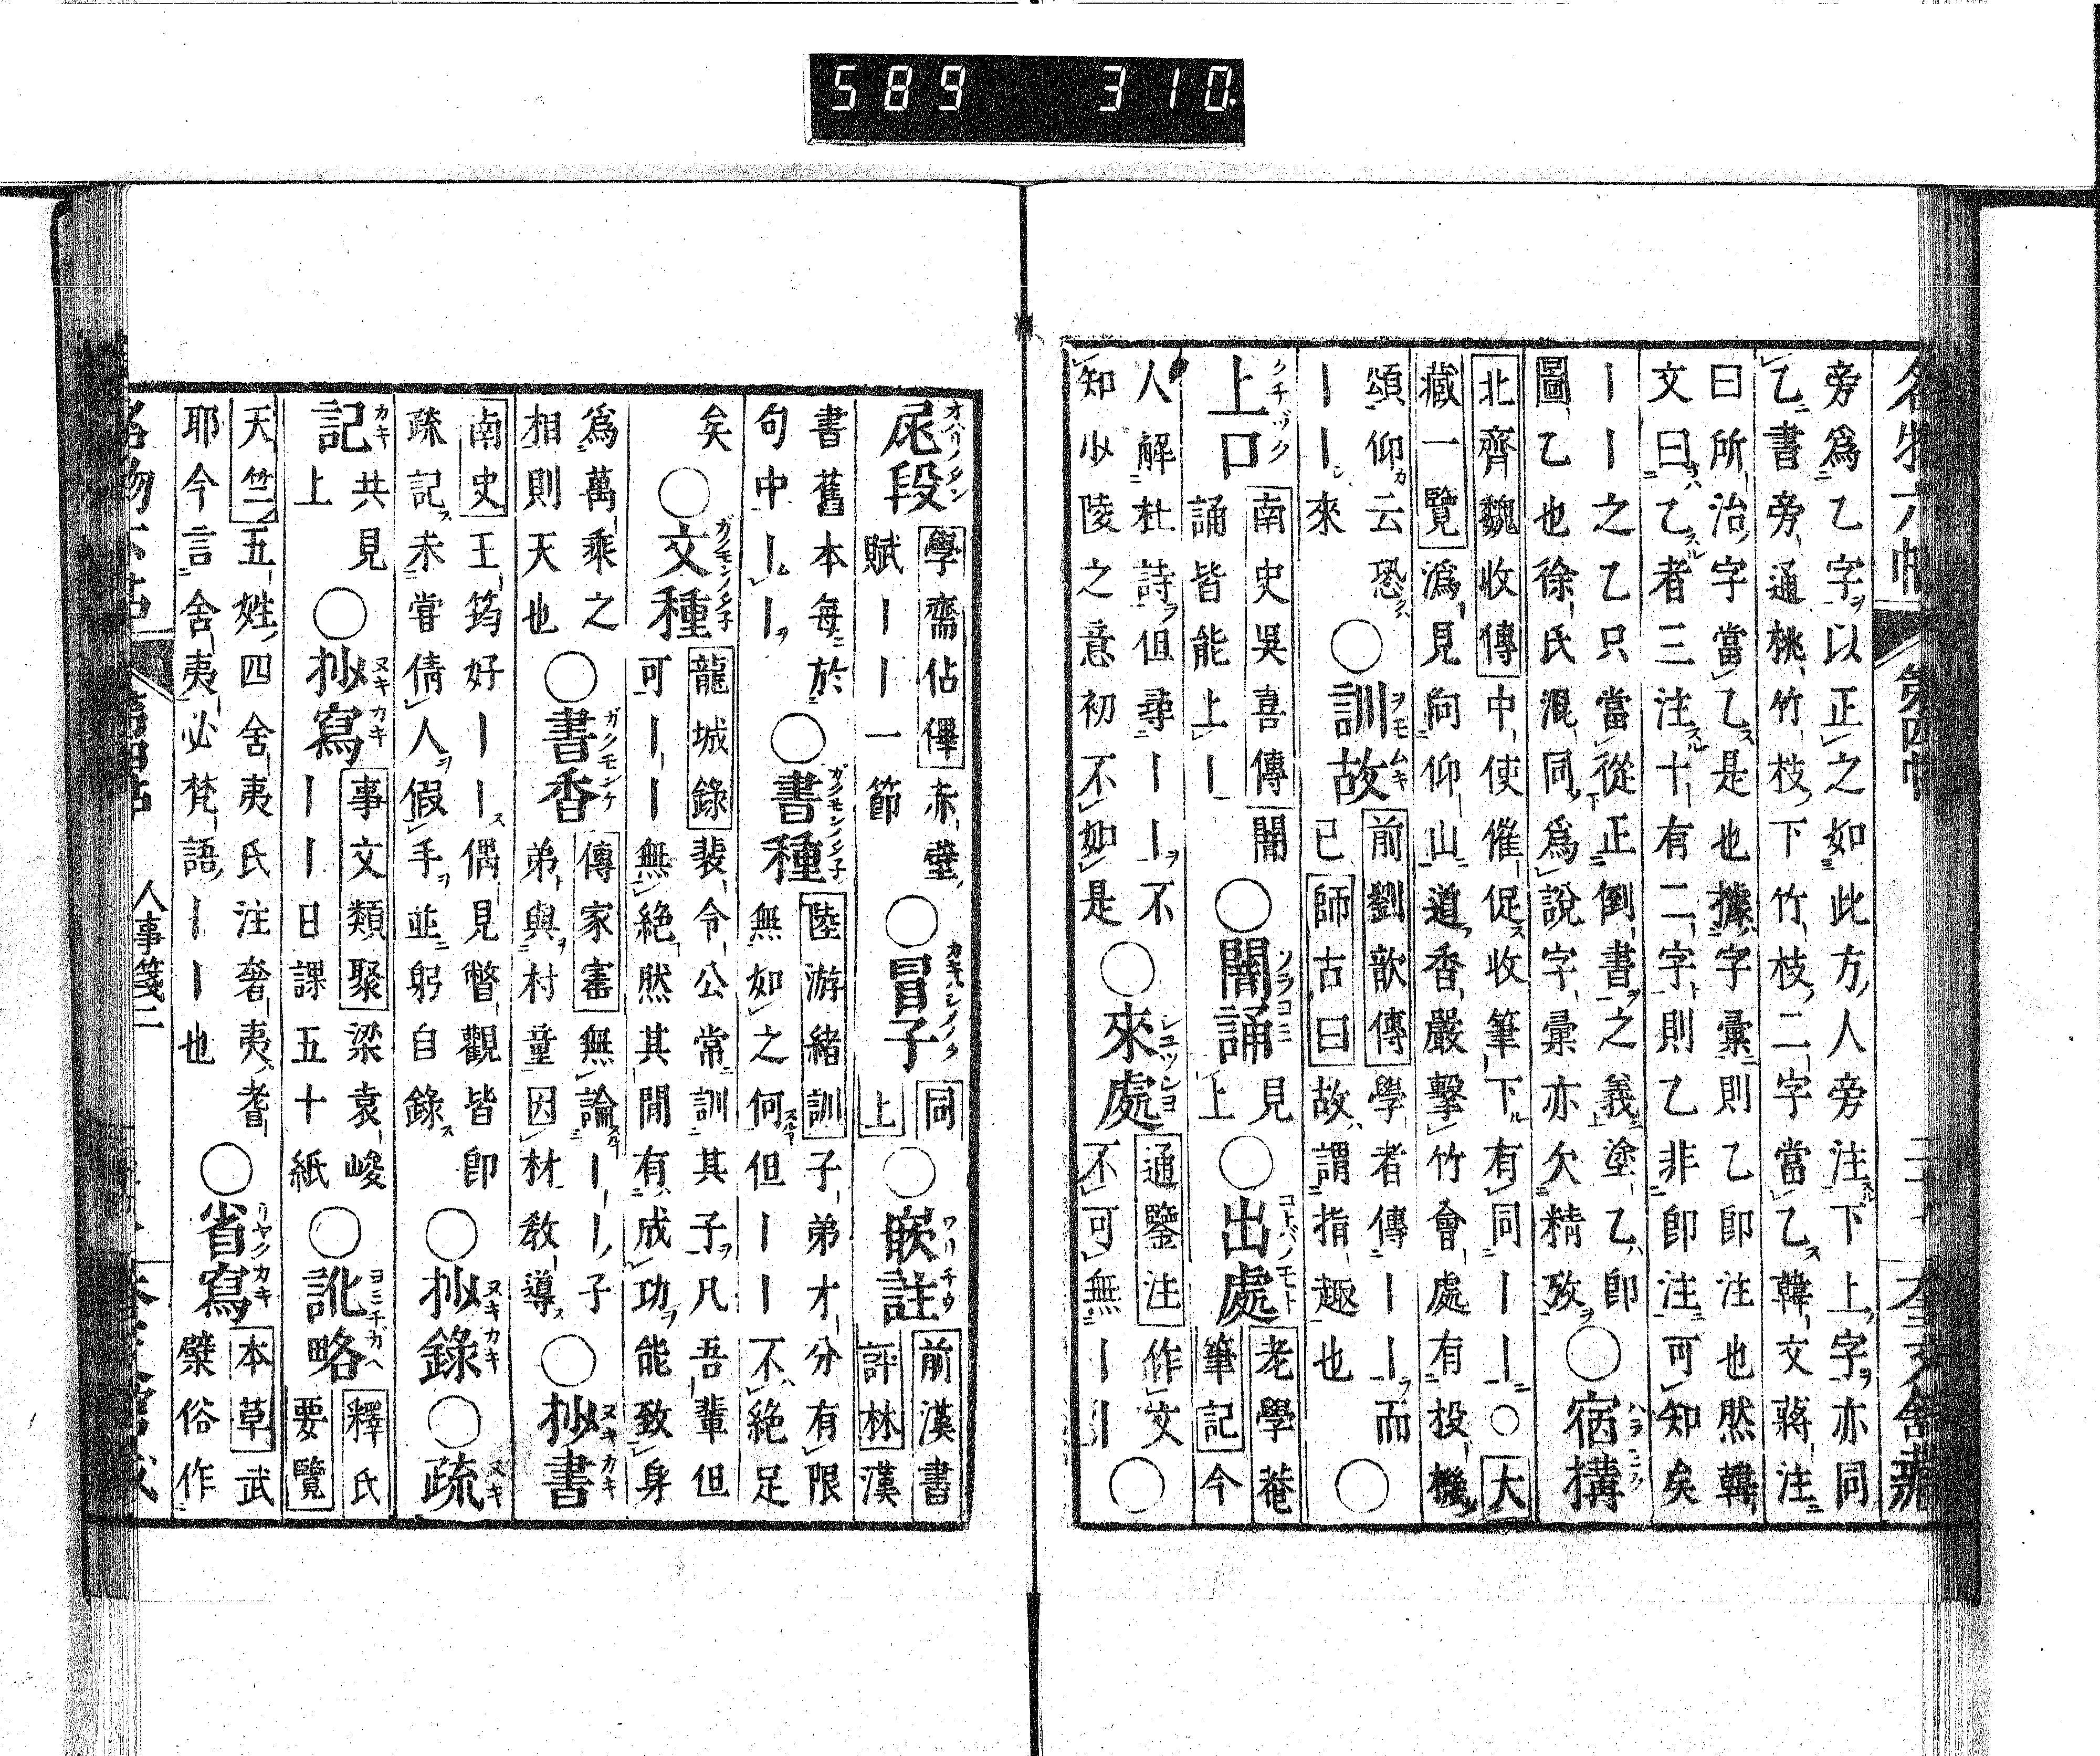 名物六帖 第四帖 奎文舘藏
旁爲乙字以正之如此方人旁注下上字亦同
乙書旁通桃竹枝下竹枝二字當乙韓文蔣注
曰所治字當乙是也據字彙則乙卽注也然韓
文曰乙者三注十有二字則乙非卽注可知矣
丨丨之乙只當從正倒書之義塗乙卽
圖乙也徐氏混同爲說字彙亦欠精攷
○宿搆
北齊魏收傳中使催促收筆下有同丨丨○大
藏一覽潙見向仰山道香嚴擊竹會處有投機
頌仰云恐
丨丨來
○訓故
前劉歆傳學者傳丨丨而
已師古曰故謂指趣也
○
上口
南史吳喜傳闇
誦皆能上丨
○闇誦
見
上
○出處
老學菴
筆記今
人解杜詩但尋丨丨不
知少陵之意初不如是
○來處
通鑒注作文
不可無丨丨
○
尾段
學齋佔僤赤壁
賦丨丨一節
○冒子
同
上
○嵌註
前漢書
評林漢
書舊本每於
句中丨丨
○書種
陸游緒訓子弟才分有限
無如之何但丨丨不絕足
矣
○文種
龍城錄裴令公常訓其子凡吾輩但
可丨丨無絕然其閒有成功能致身
爲萬乘之
相則天也
○書香
傳家寶無論丨丨子
弟與村童因材教導
○抄書
南史王筠好丨丨偶見瞥觀皆卽
疎記未嘗倩人假手並躬自錄
○抄錄○疏
記
共見
上
○抄寫
事文類聚梁袁峻
丨丨日課五十紙
○訛略
釋氏
要覽
天竺五姓四舍夷氏注奢夷耆
耶今言舍夷必梵語丨丨也
○省寫
本草武
檗俗作
人事箋二
589 310.